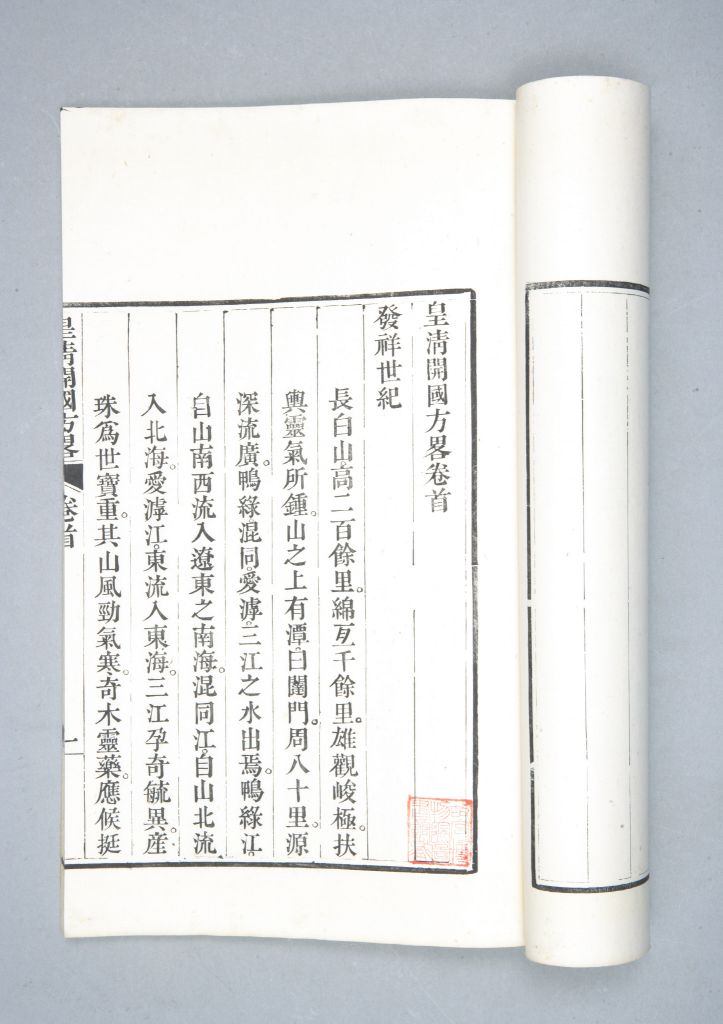 皇淸開國方畧卷首
發祥世紀
長白山。高二百餘里。綿亙千餘里。雄觀峻極。扶
輿靈氣所鍾。山之上有潭。曰闥門。周八十里。源
深流廣。鴨綠混同。愛滹。三江之水出焉。鴨綠江。
自山南西流入遼東之南海。混同江。自山北流
入北海。愛滹江。東流入東海。三江孕奇毓異。產
珠爲世寶重。其山風勁氣寒。奇木靈藥。應候挺
皇淸開國方畧 卷首
一